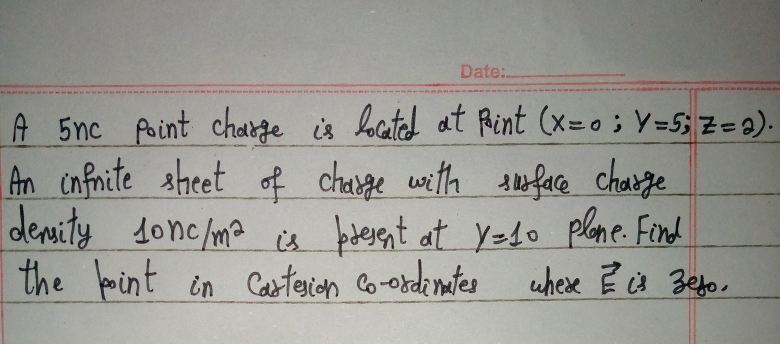 Date:
A 5nc point charge is located at Point (X=0; Y=5; Z=2).
An infnite sheet of charge with surface charge
density 10nc/m2 is present at Y=10 plane. Find
the point in Cartesion Co-ordinates where E⃗ is Zero.